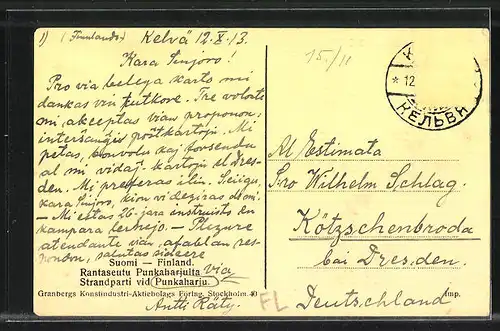 1) (Finnlando.) Kelvä 12.X.13.
Kara Sinjoro!
Pro via belega karto mi
dankas vin tutkore. Tre volonte
mi akceptas vian proponon:
interŝanĝi poŝtkartojn. Mi
petas, bonvolu kaj forsendu
al mi vidaj-kartojn el Dres-
den. Mi preferas ilin. Sciigu,
kara Sinjoro, kion vi deziras de mi.
– Mi estas 26-jara instruisto en
kampara lernejo. – Plezure
atendante vian afablan res-
pondon, salutas sincere
via
Antti Räty.
Suomi — Finland.
Rantaseutu Punkaharjulta
Strandparti vid Punkaharju.
Granbergs Konstindustri-Aktiebolags Förlag, Stockholm.
15./11
12
КЕЛЬВЯ
Al Estimata
S-ro Wilhelm Schlag.
Kötzschenbroda
bei Dresden.
Deutschland
Imp.
FL